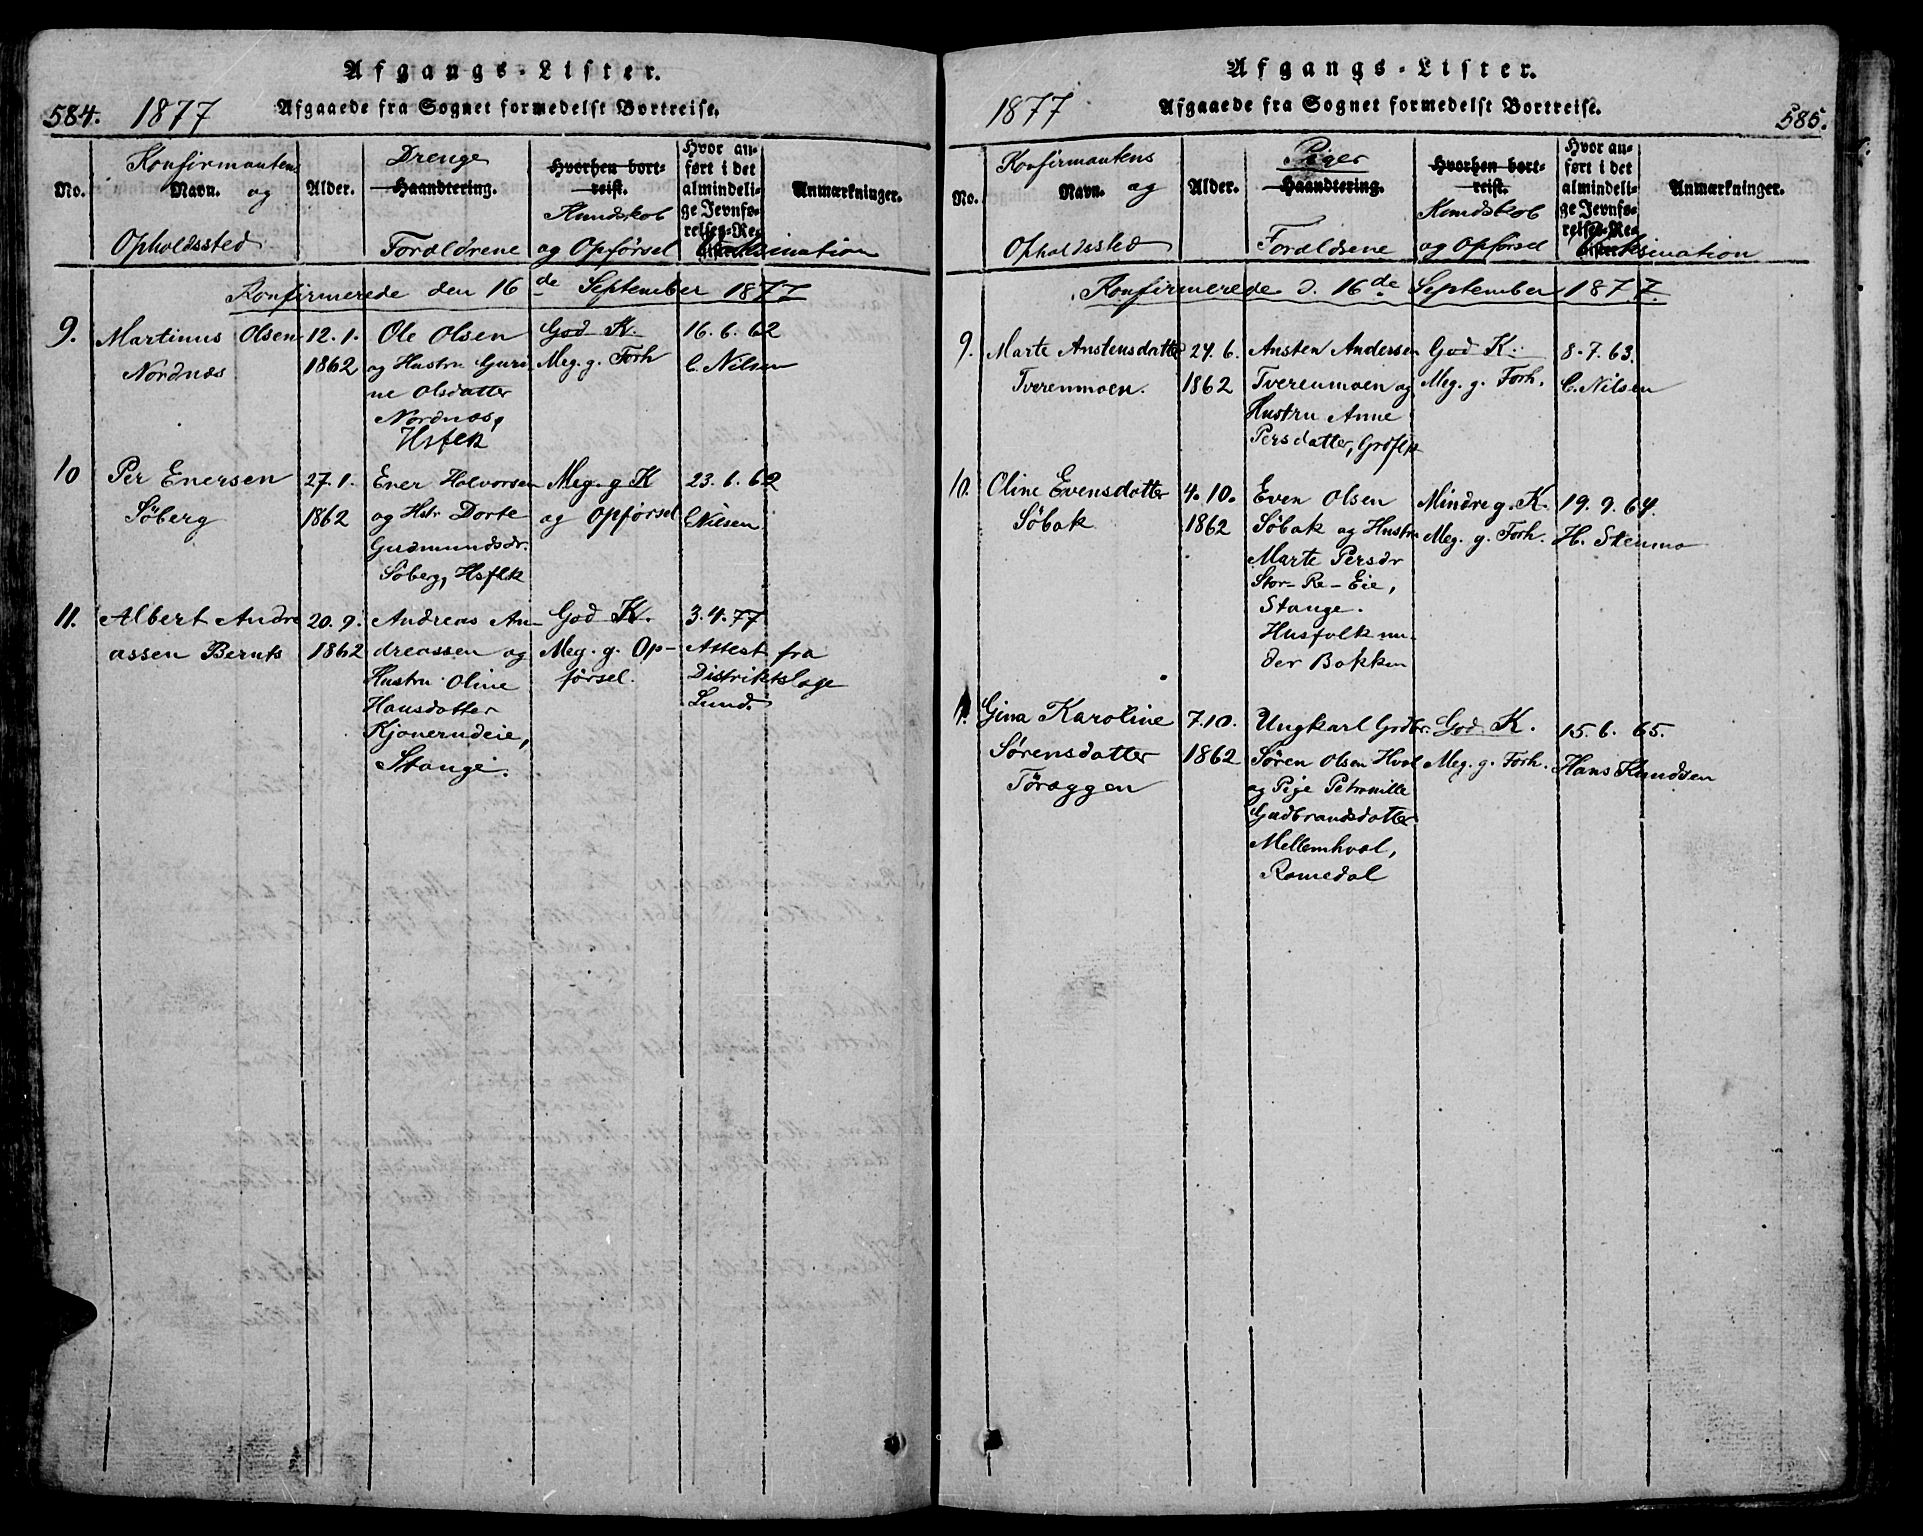 Afgangs-Lister.
584. 1877 Afgaaede fra Sognet formedelst Bortreise.
No. Konfirmantens Navn. og Opholdssted
Alder.
Drenge Haandtering. Forældrene
Hvorhen bortreist. Kundskab og Opførsel
Hvor anført i det almindelige Jevnførelses-Re
Vaksination
Anmærkninger.
Konfirmerede den 16de September 1877
9. Martinus Olsen 12.1. Ole Olsen God K. 16.6.62
Nordnæs 1862 og Hustru Guri Meg. g. Forh C. Nilsen
ne Olsdatter
Nordnæs,
Hsflk
10 Per Enersen 27.1. Ener Halvorsen Meg. g K 23.6.62
Søberg 1862 og Hstr Dorte og Opførsel C Nilsen
Gudmundsdr.
Søberg, Hsflk
11. Albert Andre 20.9. Andreas An- God K. 3.4.77
assen Bernts 1862 dreassen og Meg. g. Op- Attest fra
Hustru Oline førsel. Distriktslæge
Hansdatter Lund.
Kjonerudeie,
Stange.
Afgangs-Lister.
1877 Afgaaede fra Sognet formedelst Bortreise. 585.
No. Konfirmantens Navn. og Opholdssted
Alder.
Piger Haandtering. Forældrene
Hvorhen bortreist. Kundskab og Opførsel
Hvor anført i det almindelige Jevnførelses-Re
Vaksination
Anmærkninger.
Konfirmerede d. 16de September 1877.
9. Marte Anstensdatter 24.6. Ansten Andersen God K. 8.7.63.
Tverenmoen. 1862 Tverenmoen og Meg. g. Forh. C. Nilsen
Hustru Anne
Persdatter, Grdflk
10. Oline Evensdatter 4.10. Even Olsen Mindre g. K. 19.9.64.
Søbak 1862 Søbak og Hustru Meg. g. Forh. H. Stenmo
Marte Persdr
Stor-Re-Eie,
Stange.
Husfolk un-
der Bakken
11. Gina Karoline 7.10. Ungkarl Grdbr. God K. 15.6.65.
Sørensdatter 1862 Søren Olsen Hval Meg. g. Forh. Hans Knudsen
Tøræggen og Pige Petronille
Gudbrandsdatter
Mellemhval,
Romedal